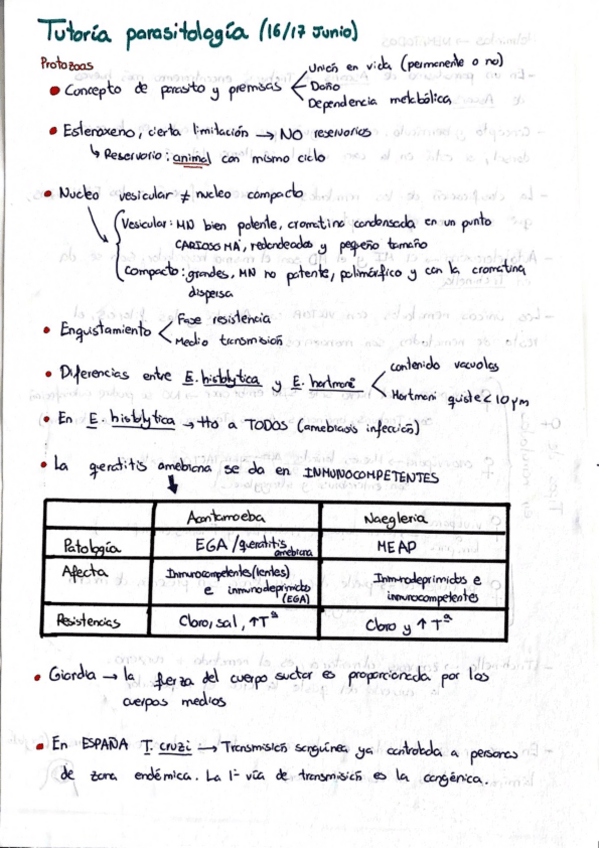 Tutoría parasitología (16/17 Junio)
Protozoos
• Concepto de parasito y premisas
Unión en vida (permanente o no)
Daño
Dependencia metabólica
• Estenoxeno, cierta limitación → NO reservorios
↳ Reservorio: animal con mismo ciclo
• Nucleo vesicular ≠ nucleo compacto
Vesicular: MN bien patente, cromatina condensada en un punto
CARIOSOMA, redondeados y pequeño tamaño
Compacto: grandes, MN no patente, polimórfico y con la cromatina
dispersa
• Enquistamiento
Fase resistencia
Medio transmisión
• Diferencias entre E. histolytica y E. hartmani
contenido vacuolas
Hartmani quiste < 10 μm
• En E. histolytica → tto a TODOS (amebiasis infección)
• La queratitis amebiana se da en INMUNOCOMPETENTES
Acantamoeba Naegleria
Patología EGA / queratitis amebiana MEAP
Afecta Inmunocompetentes (lentes) Inmunodeprimidos e
e inmunodeprimido (EGA) inmunocompetentes
Resistencias Cloro, sal, ↑Tª Cloro y ↑Tª
• Giardia → la fuerza del cuerpo suctor es proporcionada por los
cuerpos medios
• En ESPAÑA T. cruzi → Transmisión sanguínea ya controlada a personas
de zona endémica. La 1ª vía de transmisión es la congénica.